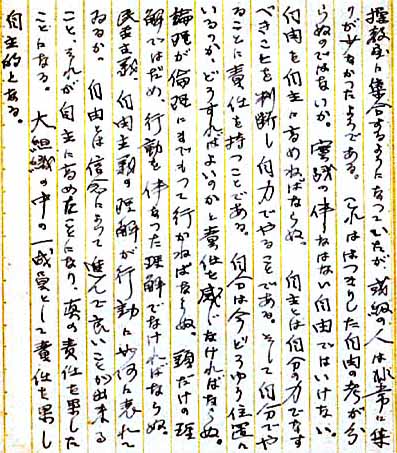 擢教室に集合するようになっていたが、我級の人は非常に集
りが少なかったようである。これははっきりした自由の考が分
らぬのではないか。実践の伴なはない自由ではいけない。
自由を自主に高めねばならぬ。自主とは自分の力でなす
べきことを判断し自力でやることである。そして自分でや
ることに責任を持つことである。自分は今どうゆう位置に
いるのか、どうすればよいのかと責任を感じなければならぬ。
論理が倫理にまでもって行かねばならぬ。頭だけの理
解ではだめ、行動を伴なった理解でなければならぬ。
民主主義、自由主義の理解が行動に如何に表れて
ゐるか。自由とは信念によって進んで良いことが出来る
こと、それが自主に高めたことになり、真の責任を果した
ことになる。大組織の中の一成員として責任を果し
自主的となる。